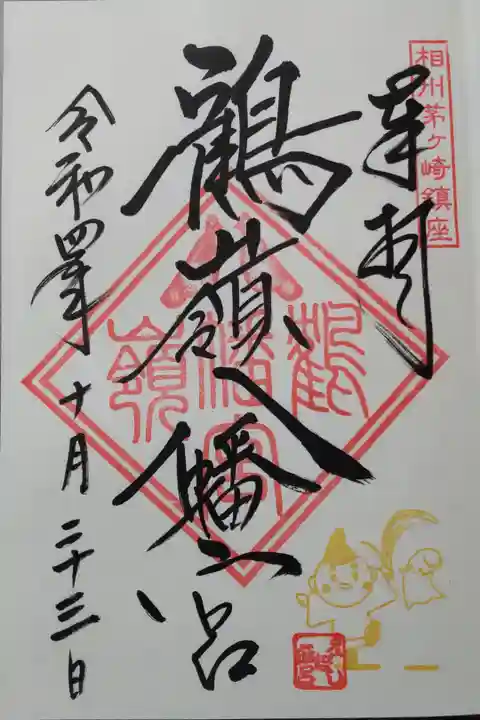 相州茅ヶ崎鎮座
奉拝
鶴嶺八幡宮
鶴嶺八幡宮
令和四年十月二十三日